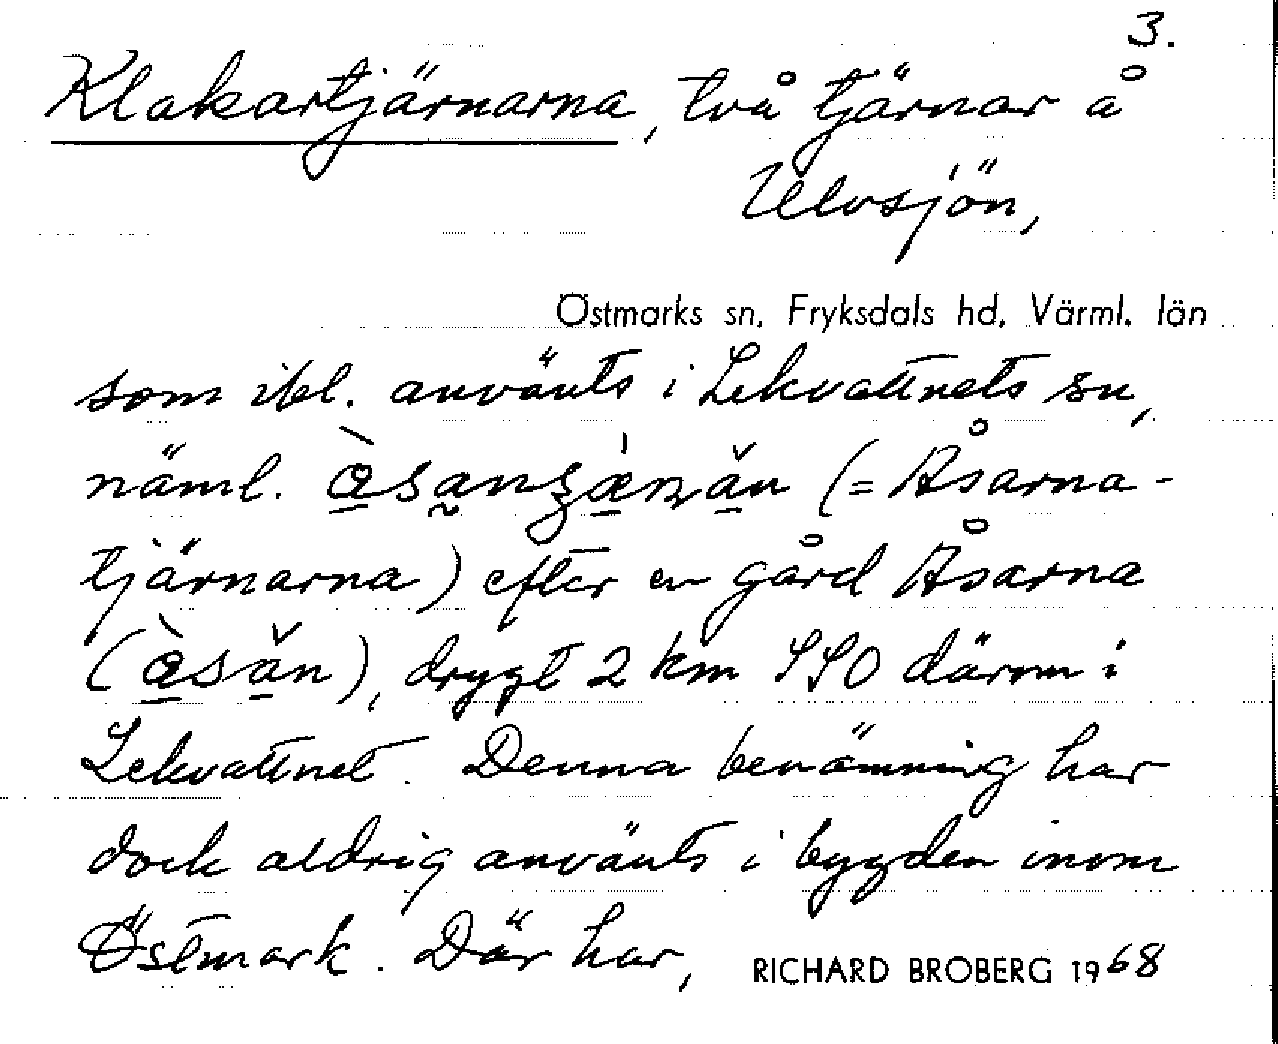 3.
Klakartjärnarna, två tjärnar å
Ulvsjön,
Östmarks sn, Fryksdals hd, Värml. län
som ibl. använts i Lekvattnets sn,
näml. (= Åsarna-
tjärnarna) efter en gård Åsarna
( ), drygt 2 km SSO därom i
Lekvattnet. Denna benämning har
dock aldrig använts i bygden inom
Östmark. Där har,
RICHARD BROBERG 1968